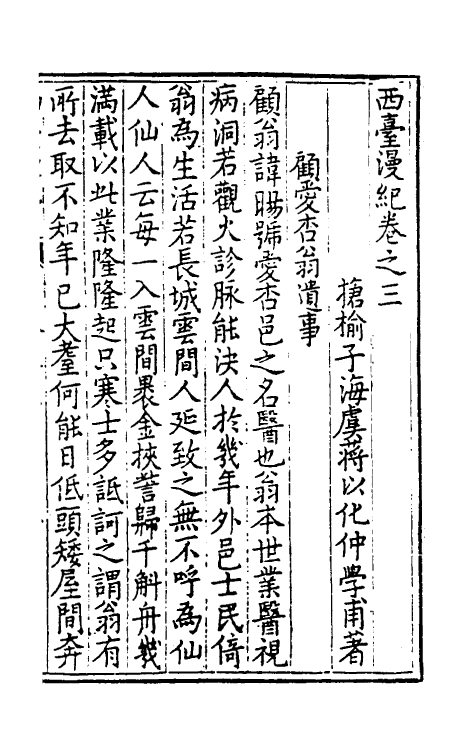 西臺漫紀卷之三
搶榆子海虞蔣以化仲學甫著
顧愛杏翁遺事
顧翁諱暘號愛杏邑之名醫也翁本世業醫視
病洞若觀火診脉能決人於幾年外邑士民倚
翁為生活若長城雲間人延致之無不呼為仙
人仙人云每一入雲間褁金挾
歸千斛舟幾
滿載以此業隆隆起只寒士多詆訶之謂翁有
所去取不知年已大耋何能日低頭矮屋間奔